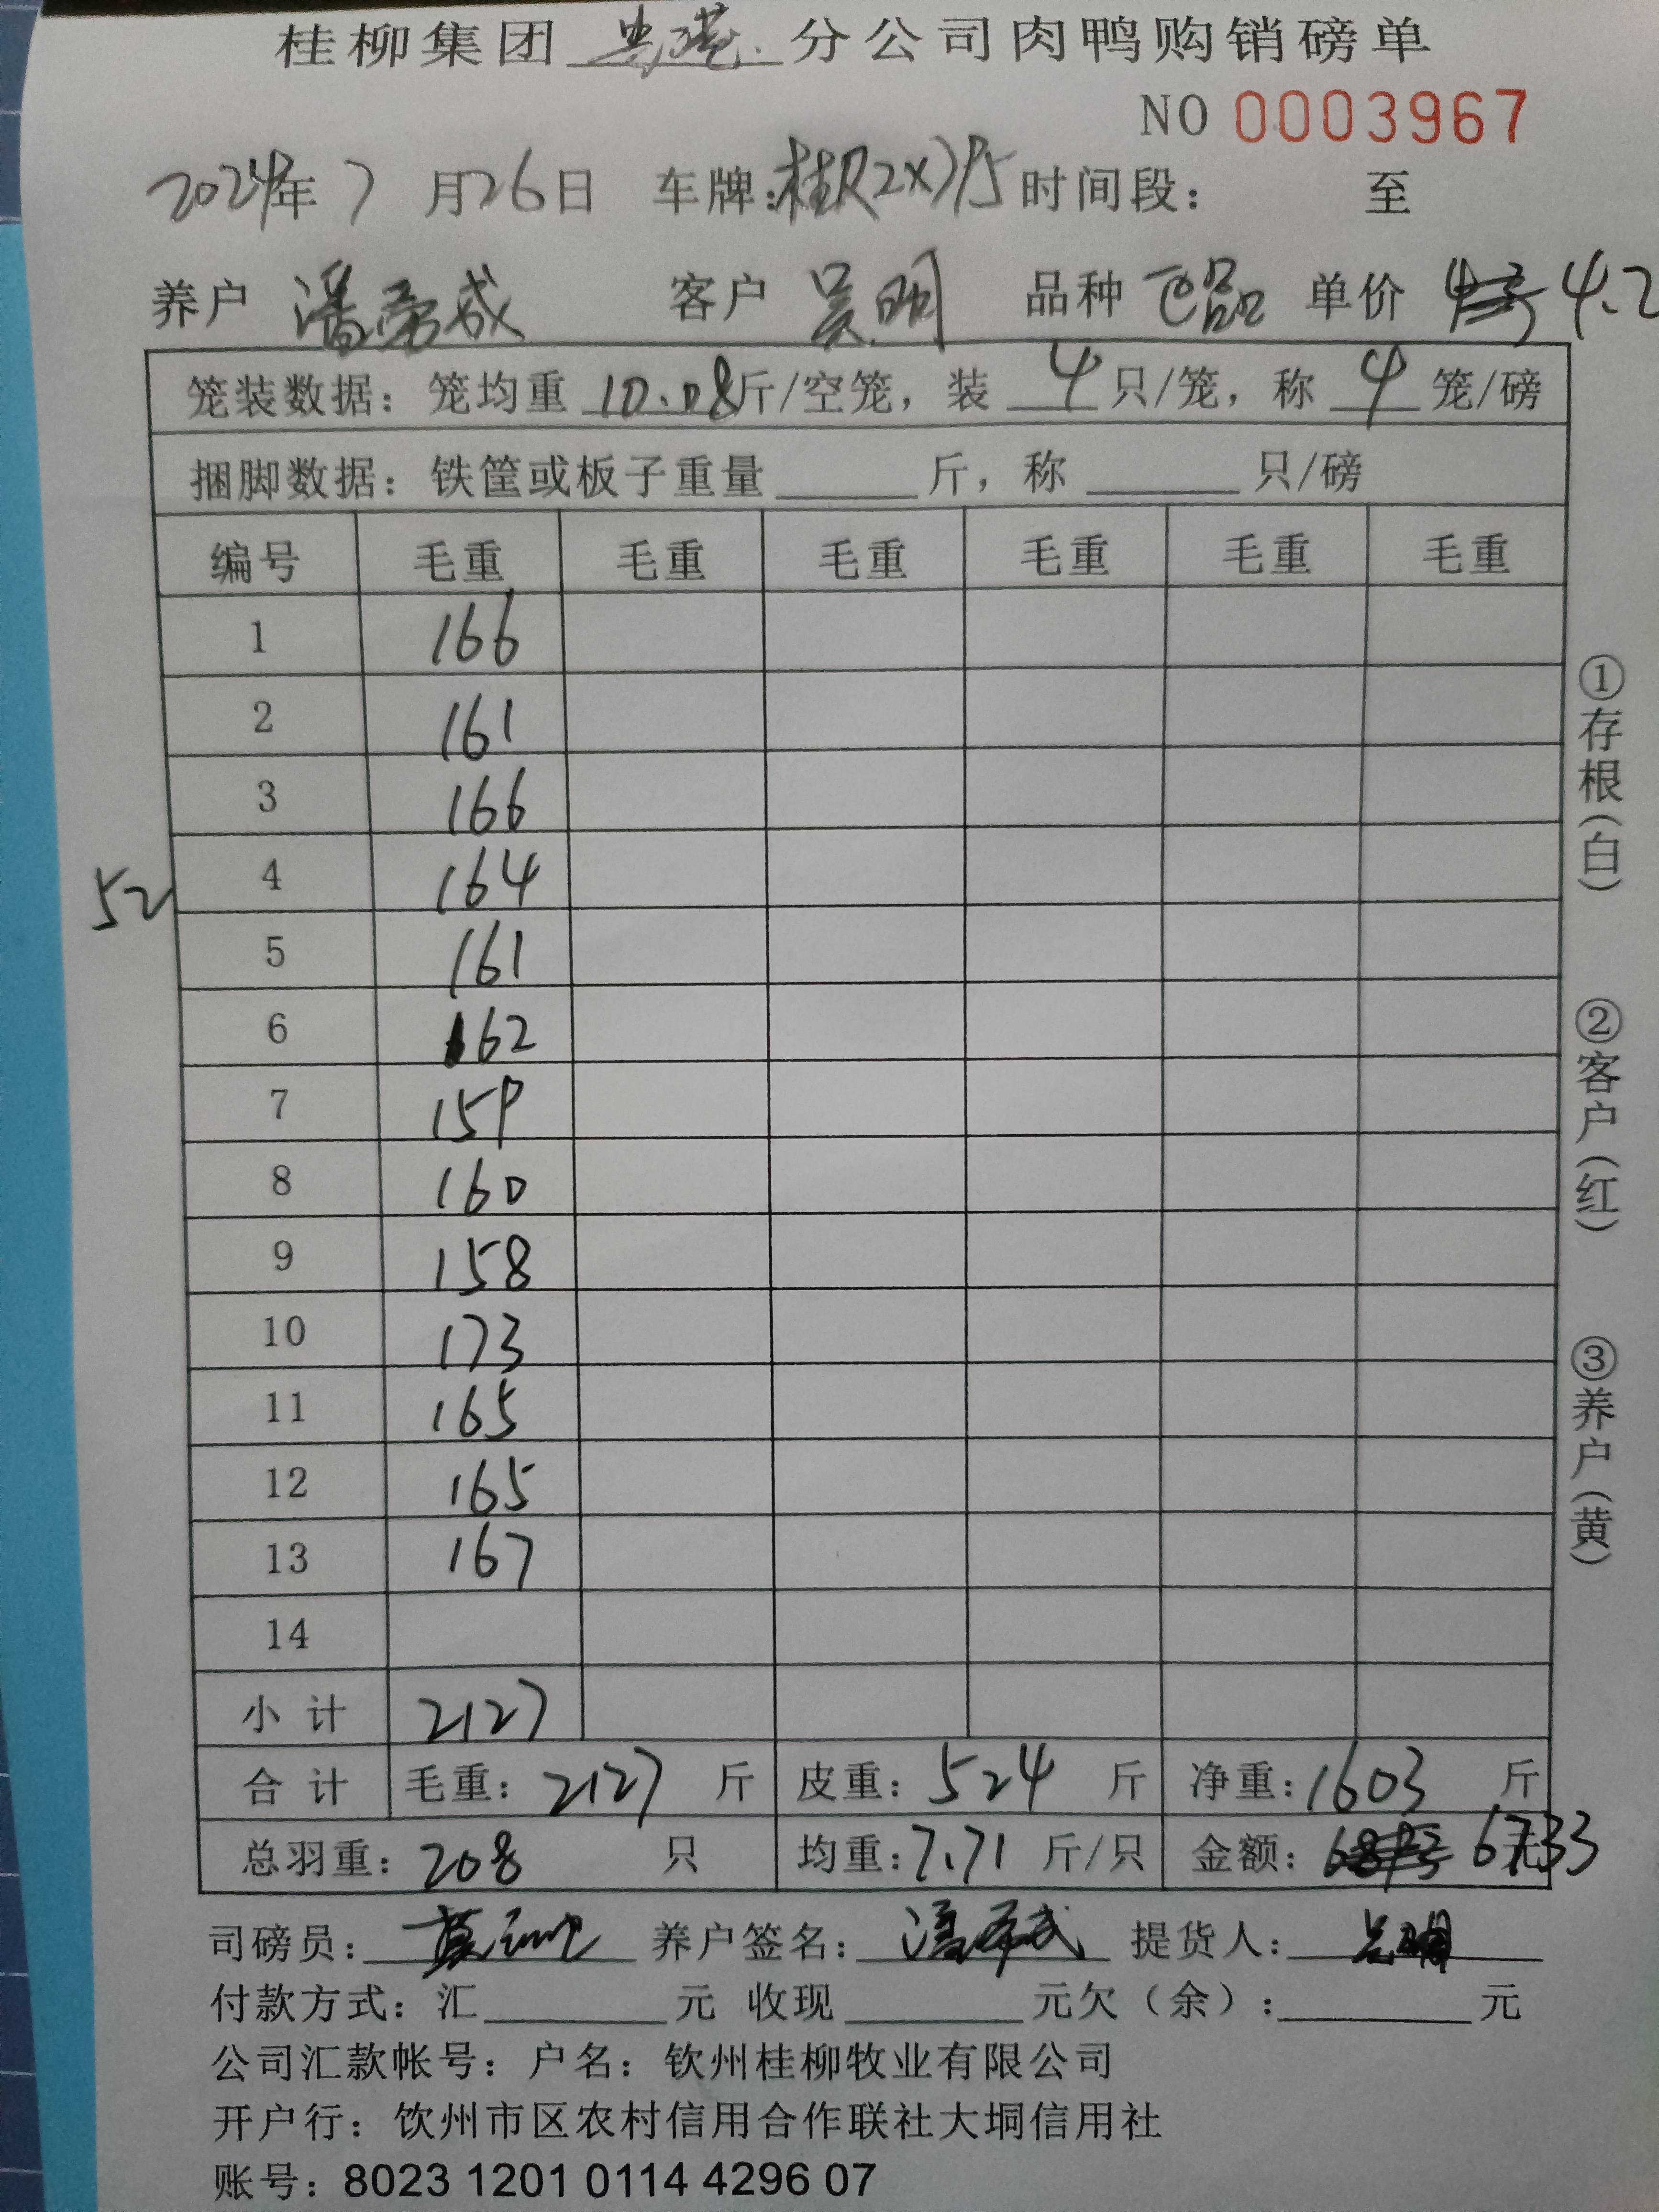 桂柳集团 贵港 分公司肉鸭购销磅单
NO 0003967
2024年 7 月 26 日 车牌: 时间段: 至
养户 潘 成 客户 吴明 品种 单价 4.2
笼装数据: 笼均重 10.08 斤/空笼, 装 4 只/笼, 称 4 笼/磅
捆脚数据: 铁筐或板子重量 斤, 称 只/磅
编号 毛重 毛重 毛重 毛重 毛重 毛重
1 166
2 161
3 166
52
4 164
5 161
6 162
7 159
8 160
9 158
10 173
11 165
12 165
13 167
14
小计 2127
合计 毛重: 2127 斤 皮重: 524 斤 净重: 1603 斤
总羽重: 208 只 均重: 7.71 斤/只 金额: 6733 元
①存根(白)
②客户(红)
③养户(黄)
司磅员: 养户签名: 提货人: 吴明
付款方式: 汇 元 收现 元欠(余): 元
公司汇款帐号: 户名: 钦州桂柳牧业有限公司
开户行: 饮州市区农村信用合作联社大垌信用社
账号: 8023 1201 0114 4296 07